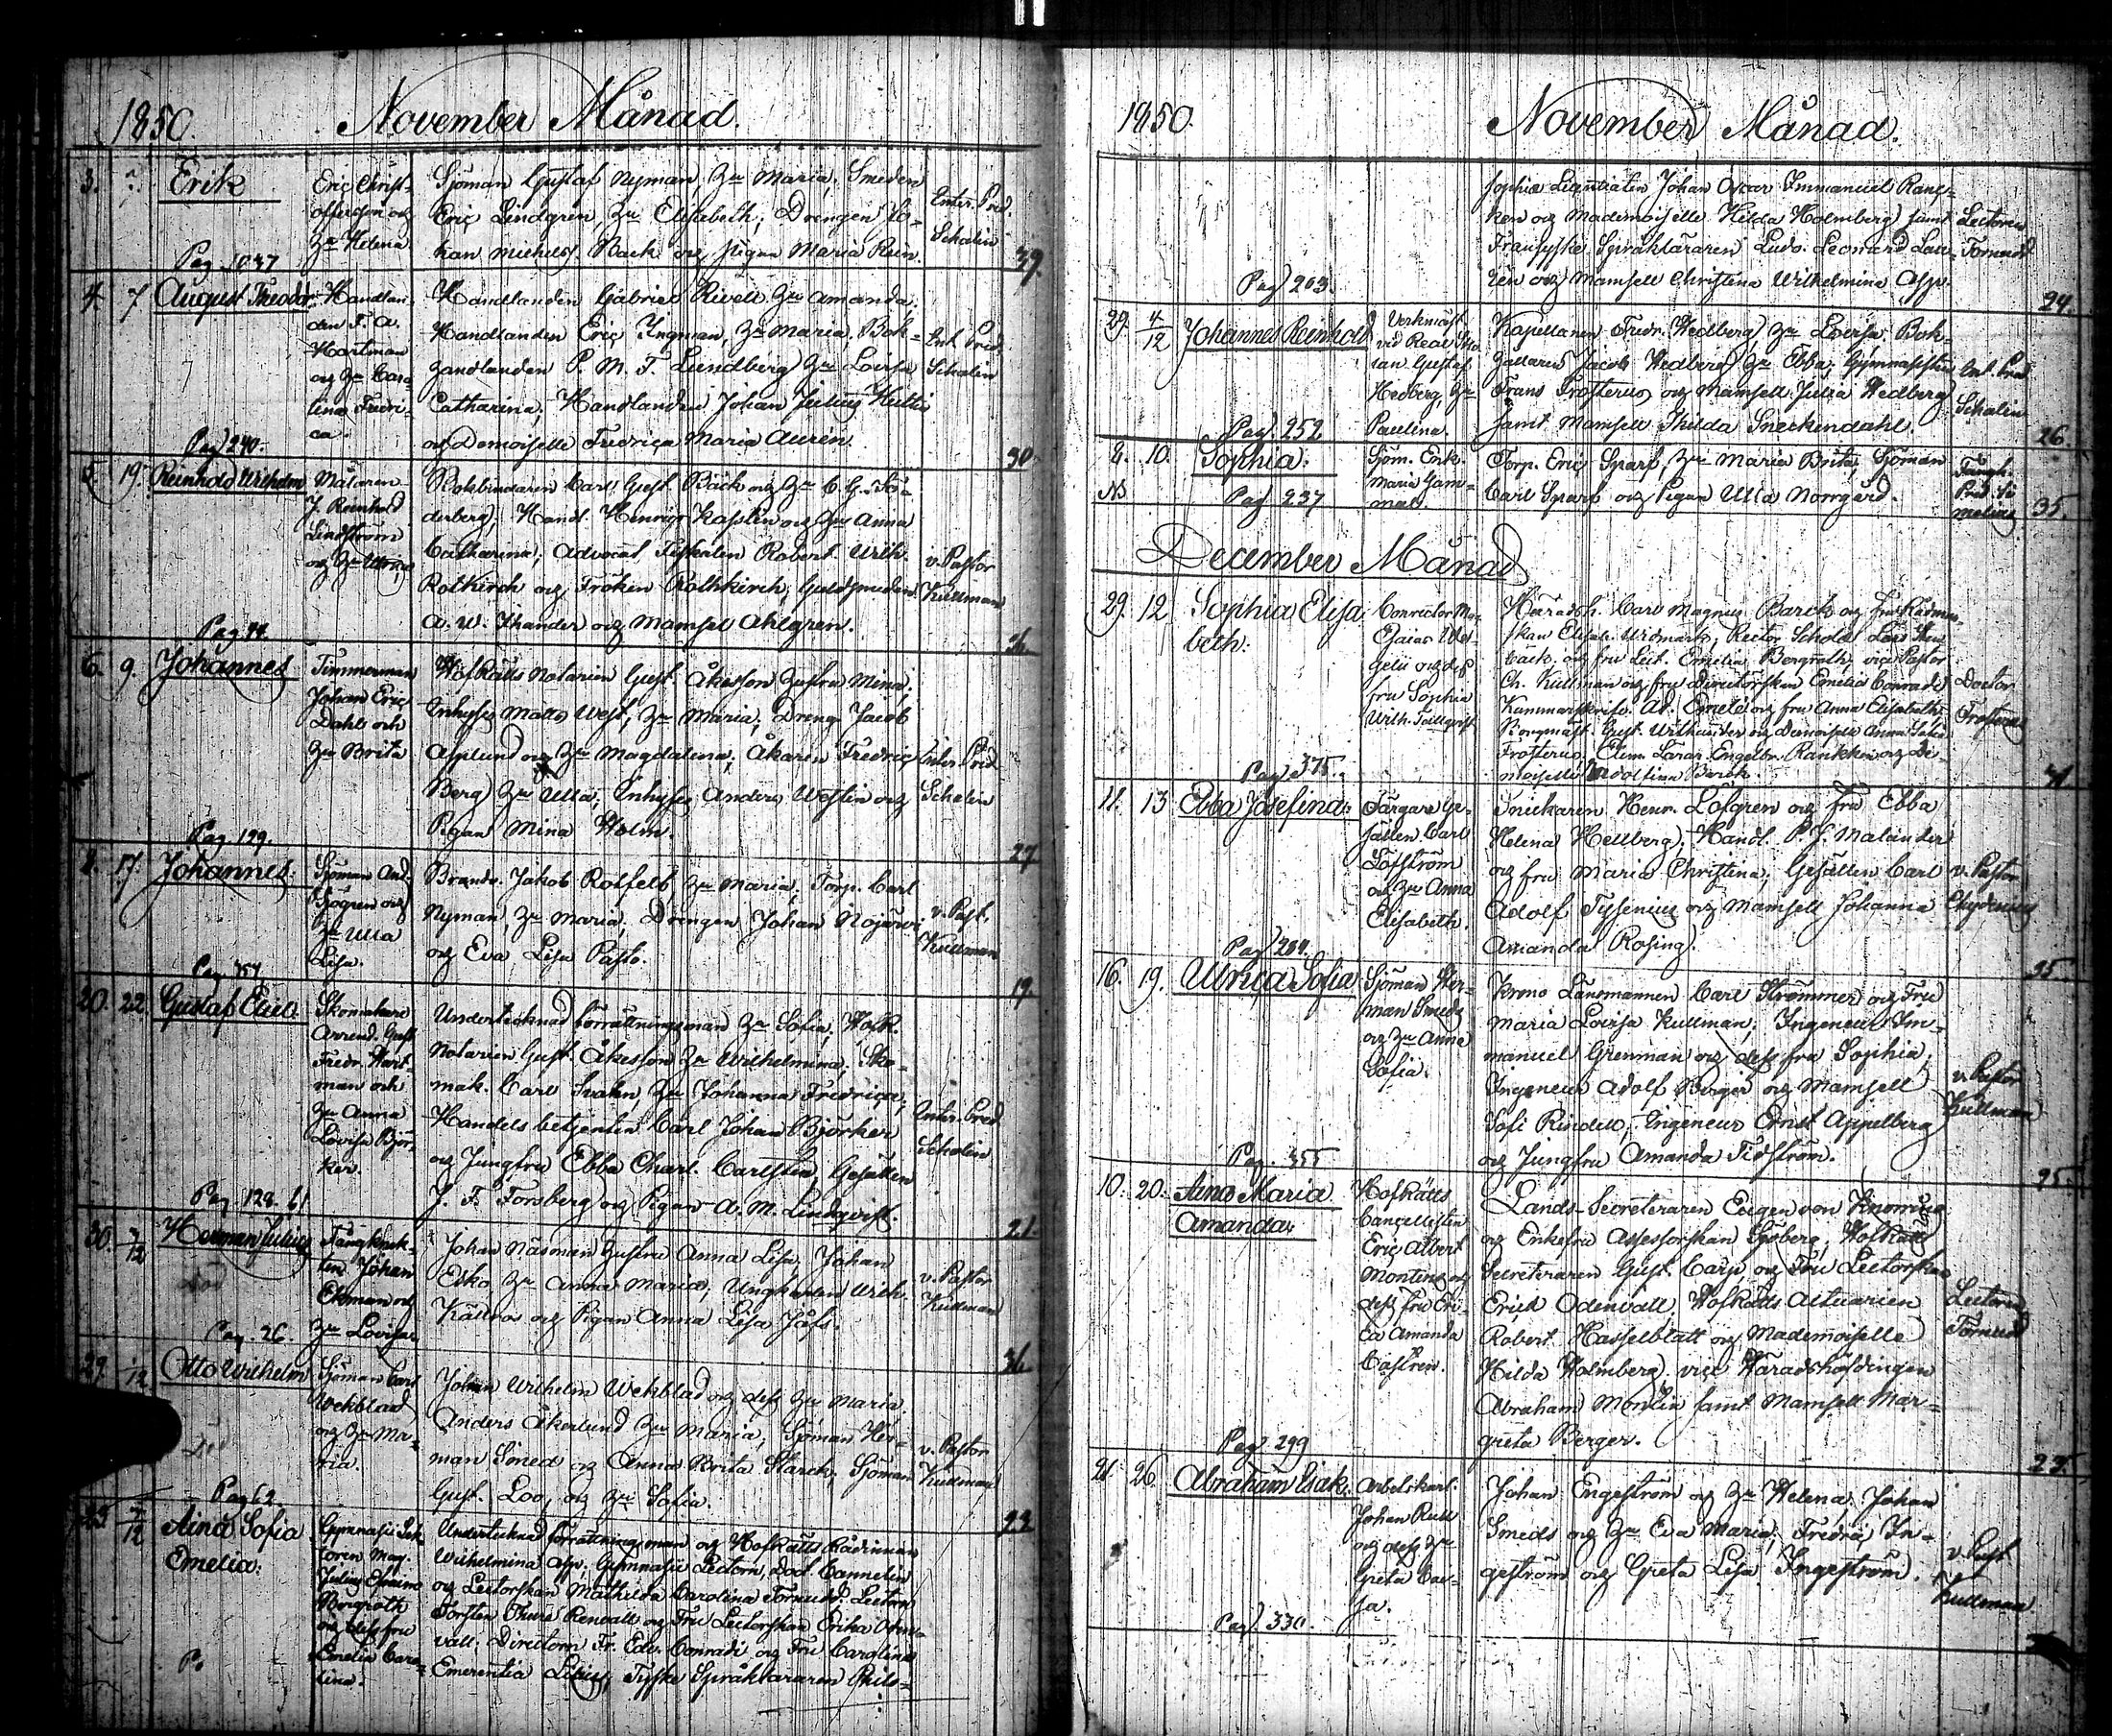 1850. November Månad.
3. Erik
Eric Christ-
offersson och
Hu Helena
Sjöman Gustaf Nyman, Hu Maria, Smeden
Eric Lindgren, Hu Elisabeth; Drengen Jo-
han Michels. Back och pigan Maria Rein.
Schalin
39.
Pag. 1037
4. 7 August Theodor
Handlan-
den F. A.
Hartman
och Hu Caro-
lina Fredri-
ca.
Handlanden Gabriel Rivell Hu Amanda,
Handlanden Eric Ingman, Hu Maria, Bok-
handlanden P. M. F. Lundberg Hu Lovisa
Catharina; Handlanden Johan Julius
och Demoiselle Fredrica Maria Aurén.
Schalin
30.
Pag 240.
5 19. Reinhold Wilhelm
Målaren
J. Reinhold
Lindström
och Hu Ulrica
Bokbindaren Carl Gust. Bäck och Hu C. G. Sö-
derberg; Handl. Henric Kasslin och Hu Anna
Catharina; Advocat Fiskalen Robert Wilh.
Rotkirch och Fröken Rothkirch, Guldsmeden
A. W. Thander och Mamsel Ahlgren.
v. Pastor
Kullman
36.
6. 9. Johannes
Timmerman
Johan Eric
Dahl och
Hu Brita
Hofrätts Notarien Gust. Åkesson Hustru Mina;
Inhyses Matts West, Hu Maria; Dreng Jacob
Applund och Hu Magdalena; Åkaren Fredric
Berg Hu Ulla; Inhyses Anders Westlin och
Pigan Mina Holm.
Schalin
27
Pag. 129.
8. 17. Johannes.
Sjöman And.
Sjögren och
Hu Ulla
Lisa.
Jakob Rolfelt Hu Maria, Torp. Carl
Nyman, Hu Maria, Drengen Johan Nojärvi
och Eva Lisa Pasto.
v. Past.
Kullman
19.
Pag. 354
20. 22. Gustaf Elied.
Skomakare
Arrend. Gust.
Fredr. Hart-
man och
Hu Anna
Lovisa Björ-
ker.
Undertecknad förrättningsman Hu Sofia, HofR.
Notarien Gust. Åkesson Hu Wilhelmina; Sko-
mak. Carl Svahn, Hu Johanna Fredrica,
Handels betjenten Carl Johan Björker
och Jungfru Ebba Charl. Carlsten, Gesällen
J. F. Forsberg och Pigan A. M. Lindqvist.
Inter. Pred
Schalin
21.
Pag 128. 61
30. 7/12 Herman Julius
Död
Fångknek-
ten Johan
Ekman och
Hu Lovisa
Johan Näsman Hustru Anna Lisa, Johan
Esko Hu Anna Maria, Ungkarlen Wilh.
och Pigan Anna Lisa
v. Pastor
Kullman
36.
Pag. 26.
29. Otto Wilhelm
Sjöman Carl
Wekblad
och Hu Ma-
ria.
Johan Wilhelm Wekblad och dess Hu Maria
Anders Åkerlund Hu Maria, Sjöman Her-
man Smed och Anna Brita Starck; Sjöman
Gust. Loo, och Hu Sofia.
v. Pastor
Kullman
22
Pag 62
23 7/12 Aina Sofia
Emelia.
Gymnasii Lek-
toren Mag.
Julius Efraim
Bergroth
och dess fru
Emelia Caro-
lina.
Undertecknad förrättningsman och Hofrätts Rådinnan
Wilhelmina Asp; Gymnasii Lectorn, Doct. Cannelin
och Lectorskan Mathilda Carolina Törnudd. Lectorn
Torsten Thure Renvall och Fru Lectorskan Erika Oden-
vall; Directorn Fr. Edv. Conradi och Fru Carolina
Emerentia Tyske Språkläraren Philo-
1850. November Månad.
sophiæ Licentiaten Johan Oscar Immanuel Ranc-
ken och Mademoiselle Hilda Holmberg samt
Fransyske Språkläraren Ludv. Leonard Lau-
rén och Mamsell Christina Wilhelmina Asp.
Lectoren
Törnudd
24.
Pag 203.
29. 4/12 Johannes Reinhold
Verkmäst.
vid Real
Gustaf
Hedberg, Hu
Paulina.
Kapellanen Fredr. Hedberg, Hu Lovisa. Bok-
hållaren Jacob Hedberg Hu Ebba; Gymnasisten
Frans Frosterus och Mamsell Julia Hedberg
samt Mamsell Thilda Sneckendahl.
Schalin
26.
Pag 252
8. 10. Sophia.
NB
Sjöm. Enk.
Maria Gam-
mals.
Torp. Eric Sparf, Hu Maria Brita, Sjöman
Carl Sparf och Pigan Ulla Norrgård.
35.
Pag 237
December Månad
29. 12. Sophia Elisa
beth.
Conrector
fru Sophia
Wilh.
Häradsh. Carl Magnus Barck och fru Rådman-
skan Elisab. Widmark; Rector Schola Lars Sten-
bäck och fru Lect. Emelia Bergroth, vice Pastor
Ch. Kullman och fru Directorskan Emelia Conradi
Kammarskrifv. Ad. Emelé och fru Anna Elisabeth
Gust. Wilhander och Demoiselle Anna Sofia
Frosterus, Elem. Lärar. Engelbr. Rancken och De-
moiselle Barck.
Doctor
Frosterus
31.
Pag 375.
11. 13 Ebba Josefina.
Färgare Ge-
sällen Carl
Löfström
och Hu Anna
Elisabeth.
Snickaren Henr. Löfgren och fru Ebba
Helena Hellberg; Handl. P. J. Malander
och fru Maria Christina; Gesällen Carl
Adolf Tysenius och Mamsell Johanna
Amanda Rosing.
v. Pastor
Chydenius
25
Pag 204.
16. 19. Ulrica Sofia
Sjöman Her-
man Smeds
och Hu Anna
Sofia.
Krono Länsmannen Carl Strömmer och Fru
Maria Lovisa Kullman; Ingeneur Im-
manuel Grenman och dess fru Sophia;
Ingeneur Adolf Berger och Mamsell
Sofi Rindell; Ingeneur Ernst Appelberg
och Jungfru Amanda Tidström.
v. Pastor
Kullman
25.
Pag. 355
10. 20. Aina Maria
Amanda.
Hofrätts
Cancellisten
Eric Albert
Montin och
dess fru Eri-
ca Amanda
Castrén.
Lands-Secreteraren Eugen von Knorring
och Enkefru Assessorskan Sjöberg; Hofrätts
Secreteraren Gust. Carp och Fru Lectorskan
Erica Odenvall, Hofrätts Actuarien
Robert Hasselblatt och Mademoiselle
Hilda Holmberg, vice Häradshöfdingen
Abraham Montin samt Mamsell Mar-
greta Berger.
Lectoren
Törnudd
23.
Pag. 299
21. 26. Abraham Isak.
Arbetskarl.
Johan Rull
och dess Hu
Greta Caj-
sa.
Johan Engeström och Hu Helena, Johan
Smeds och Hu Eva Maria; Fredric In-
geström och Greta Lisa Ingeström.
v. Past
Kullman
Pag. 330.